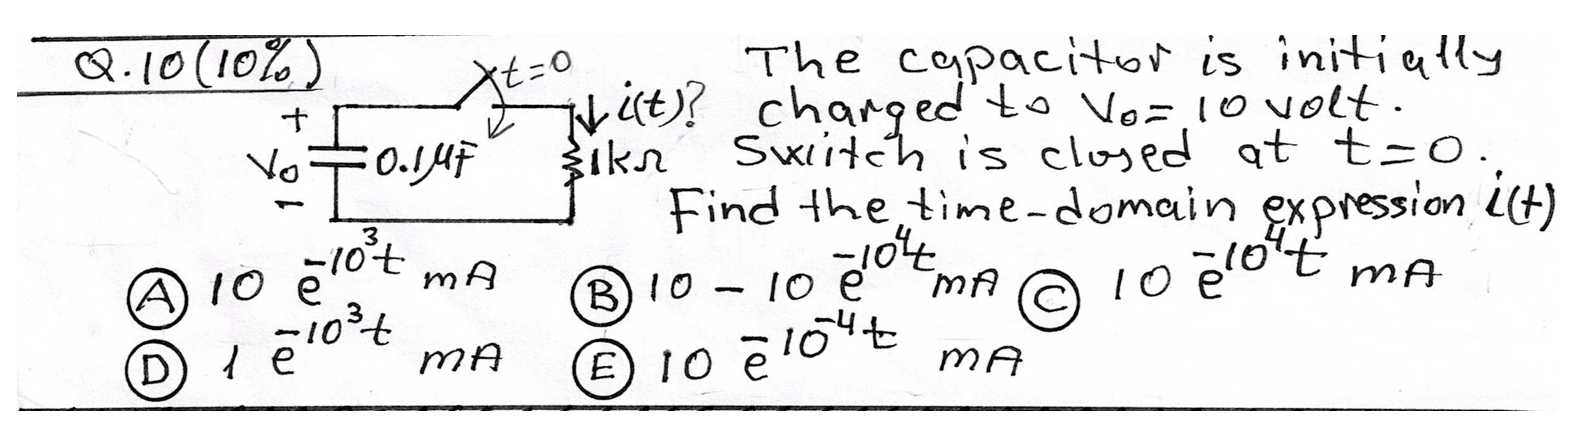 Q.10 (10%)
t=0
The capacitor is initially
+
i(t)?
charged to V₀= 10 volt.
V₀
0.1μF
1kΩ
Switch is closed at t=0.
-
Find the time-domain expression i(t)
Ⓐ 10 e^-10³t mA
Ⓑ 10 - 10 e^-10⁴t mA
Ⓒ 10 e^-10⁴t mA
Ⓓ 1 e^-10³t mA
Ⓔ 10 e^-10⁻⁴t mA